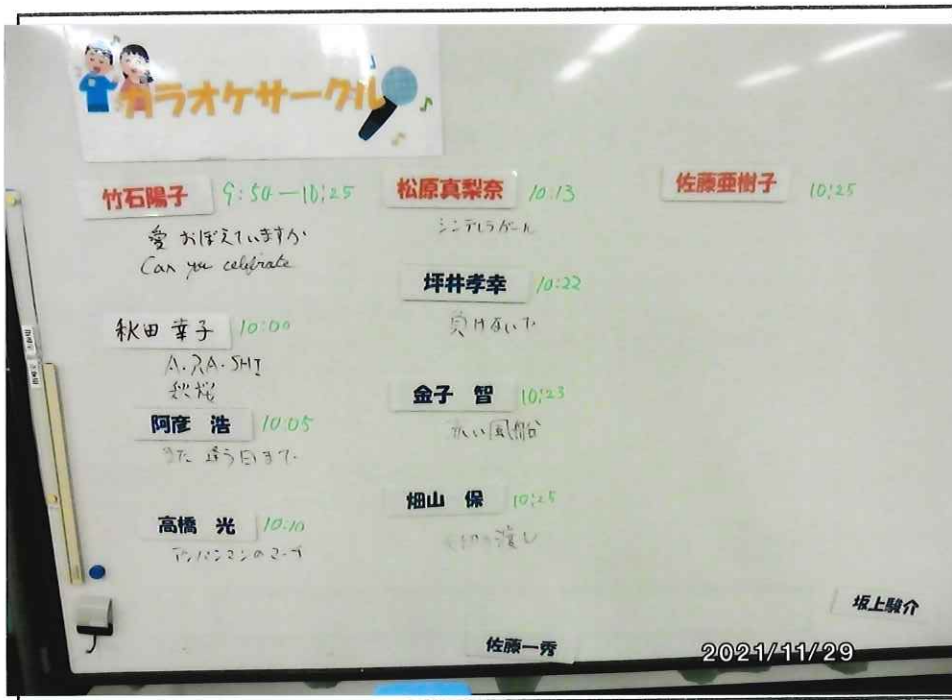 カラオケサークル
竹石陽子 9:50－10:25
愛 おぼえていますか
Can you celebrate
秋田 幸子 10:00
A・RA・SHI
秋桜
阿彦 浩 10:05
また 逢う日まで
高橋 光 10:10
アンパンマンのマーチ
松原真梨奈 10:13
シンデレラガール
坪井孝幸 10:22
負けないで
金子 智 10:23
赤い風船
畑山 保 10:25
渡し
佐藤亜樹子 10:25
坂上駿介
佐藤一秀
2021/11/29